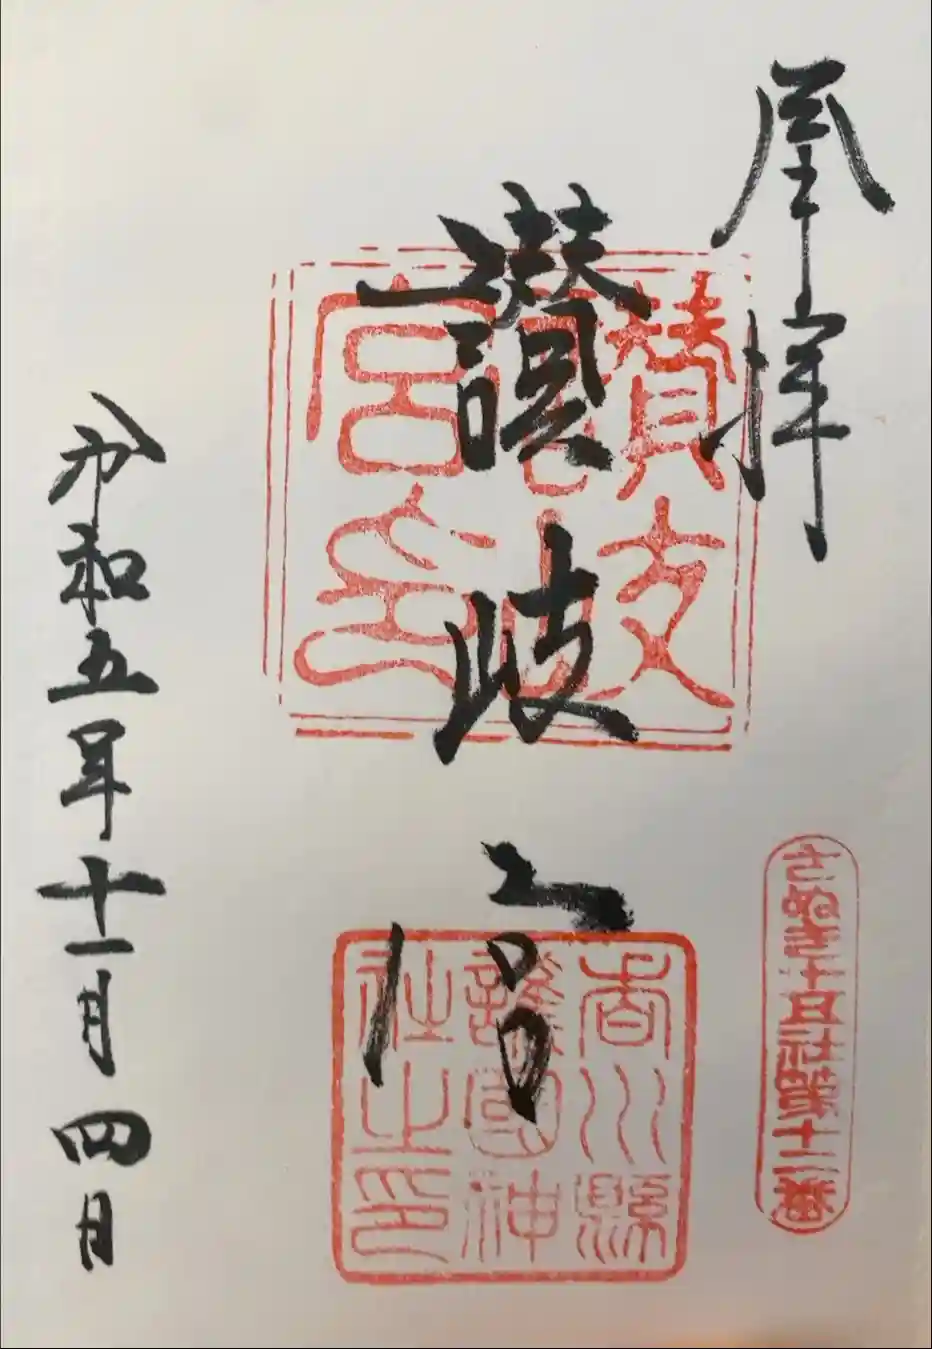 奉拝
さぬき十五社第十二番
讃岐宮
香川縣
護國神
社之印
令和五年十一月四日